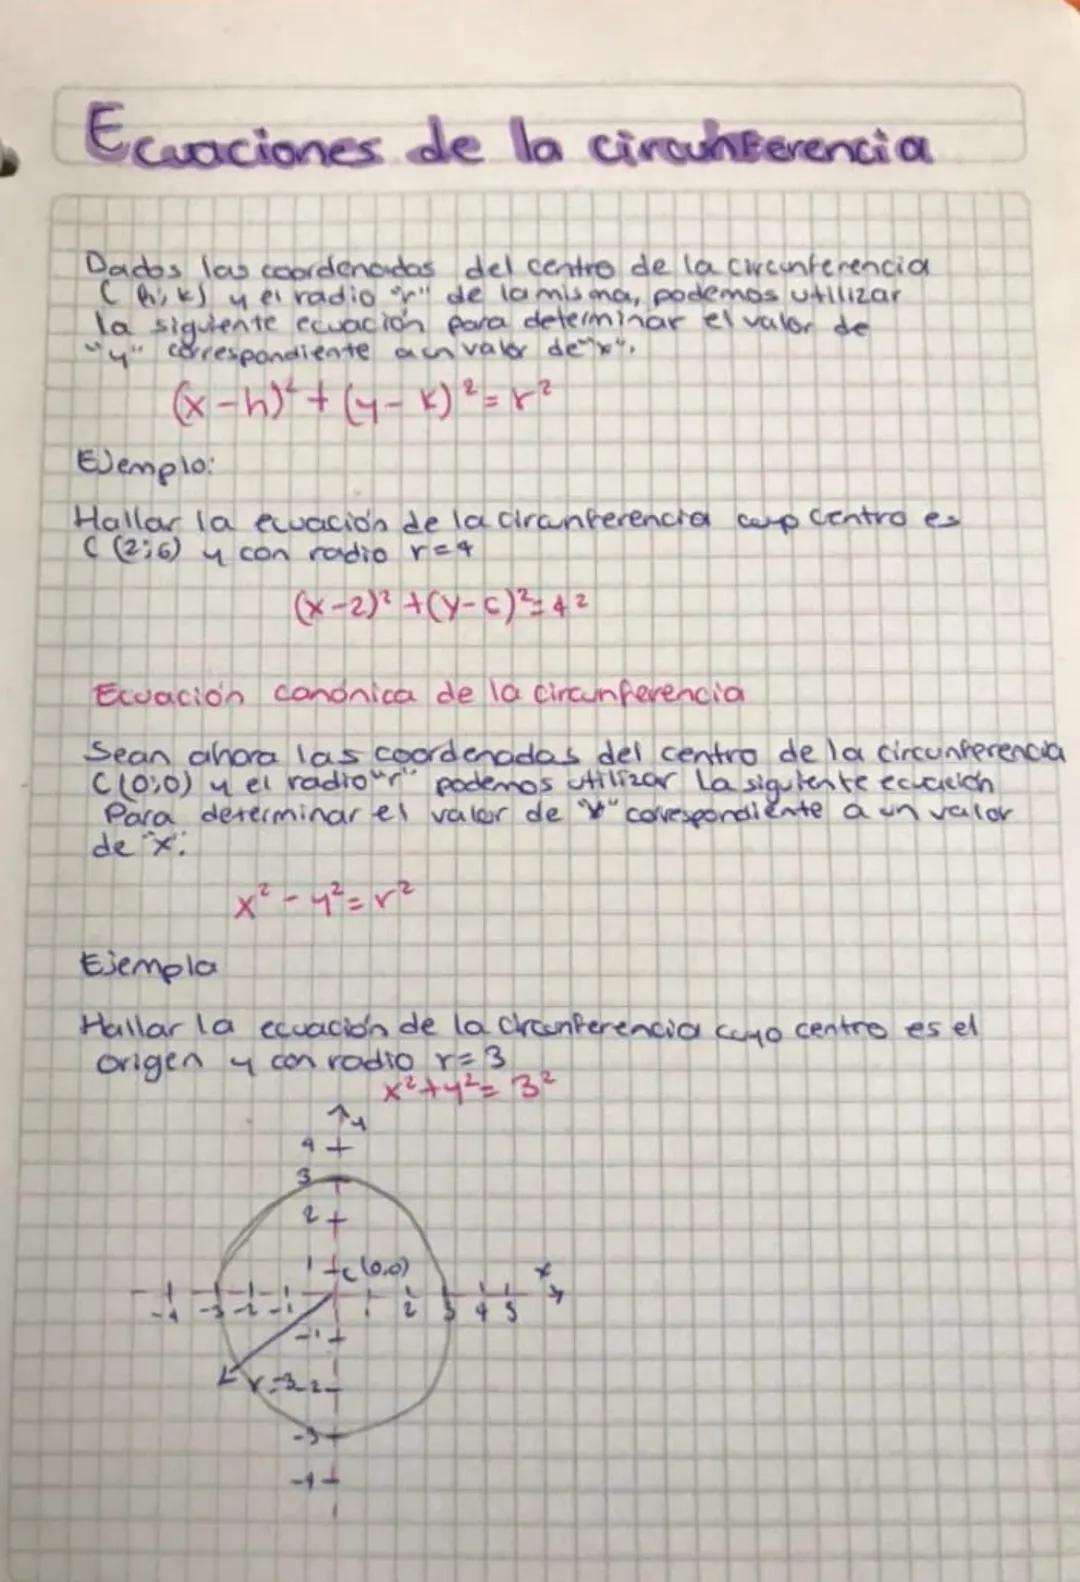 Ecuaciones de la circunferencia
Dados las coordenadas del centro de la circunferencia
C (h; k) y el radio "r" de la misma, podemos utilizar
la siguiente ecuación para determinar el valor de
"y" correspondiente a un valor de "x".
(x-h)² + (y-k)² = r²
Ejemplo:
Hallar la ecuación de la circunferencia cuyo centro es
C (2;6) y con radio r=4
(x-2)² + (y-6)² = 4²
Ecuación canónica de la circunferencia
Sean ahora las coordenadas del centro de la circunferencia
C (0;0) y el radio "r" podemos utilizar la siguiente ecuación
Para determinar el valor de "y" correspondiente a un valor
de "x".
x² - y² = r²
Ejemplo
Hallar la ecuación de la circunferencia cuyo centro es el
origen y con radio r=3
x² + y² = 3²
y
4
3
2
1 C (0,0) x
-4 -3 -2 -1 1 2 3 4 5
-1
r=3 -2
-3
-4